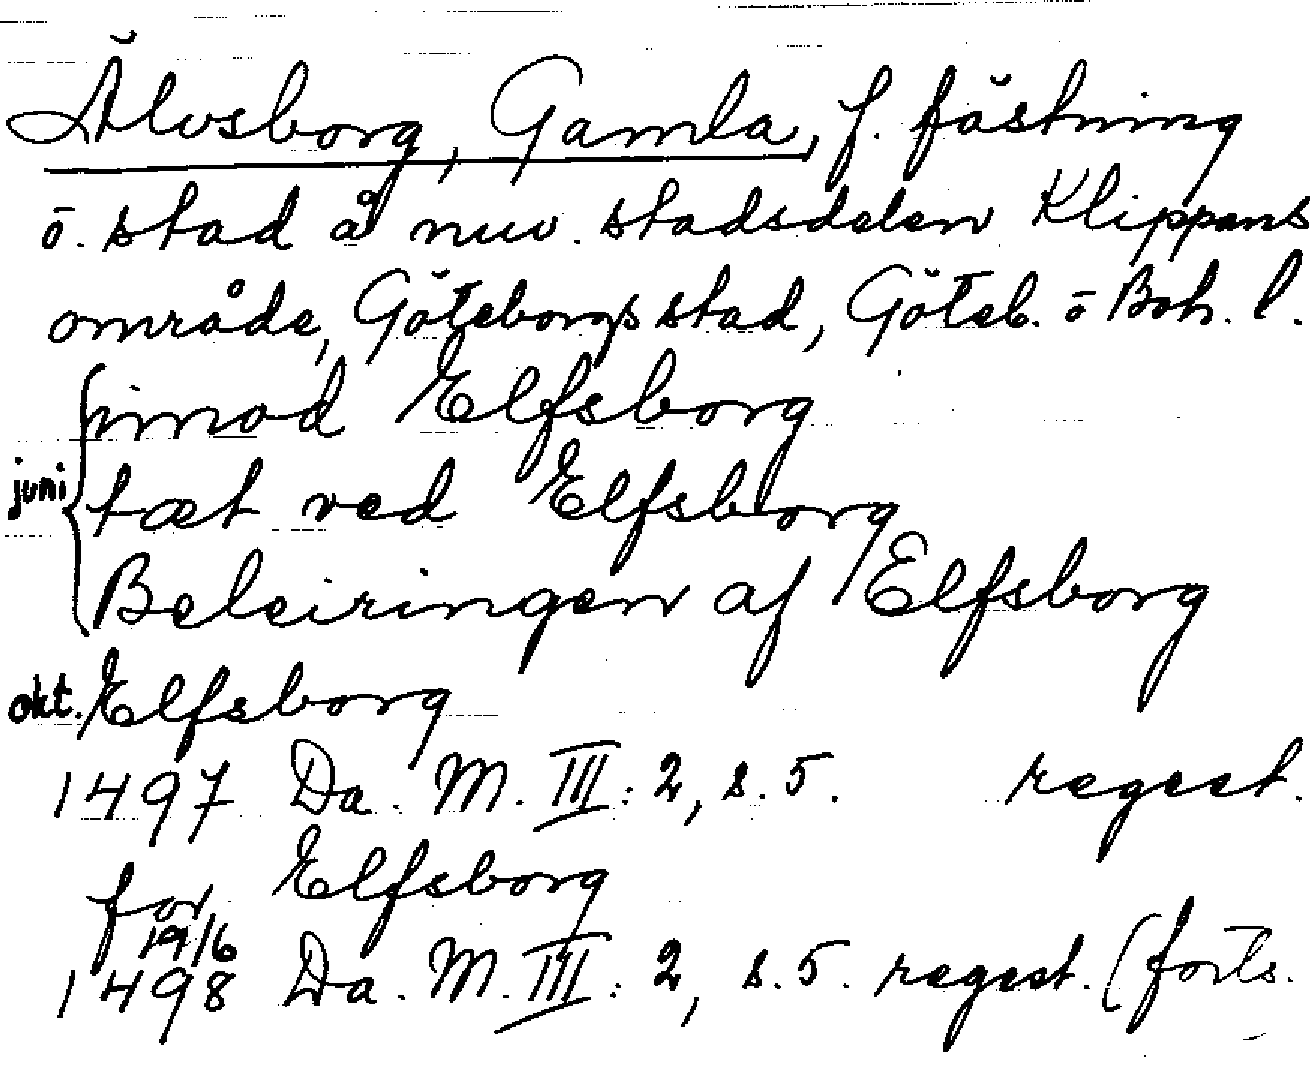 Älvsborg, Gamla, f. fästning
o. stad å nuv. stadsdelen Klippans
område, Göteborgs stad, Göteb. o Boh. l.
imod Elfsborg
juni tæt ved Elfsborg
Beleiringen af Elfsborg
okt. Elfsborg
1497 Da. M. III: 2, s. 5. regest.
for Elfsborg
19/6
1498 Da. M. III: 2, s. 5. regest. (forts.